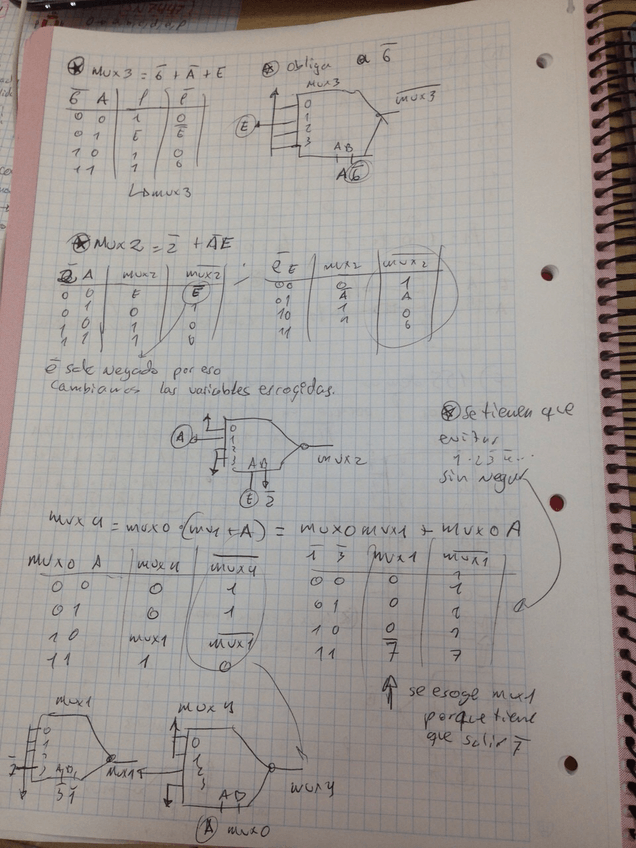 mux3 = 6̅ + A̅ + E
Obliga a 6̅
6̅ A f f̅
0 0 1 0
0 1 E E̅
1 0 1 0
1 1 1 0
mux3
mux3
0
1
2
3
E
A B
A 6̅
m̅u̅x̅3̅
mux2 = 2̅ + A̅E
2̅ A mux2 m̅u̅x̅2̅
0 0 E E̅
0 1 0 1
1 0 1 0
1 1 1 0
2̅ E mux2 m̅u̅x̅2̅
00 0 1
01 A̅ A
10 1 0
11 1 0
e̅ sale negado por eso
cambiamos las variables escogidas.
A
0
1
2
3
A B
E 2̅
mux2
Se tienen que
evitar
sin negar
mux4 = mux0 · (mux1 + A) = mux0 mux1 + mux0 A
mux0 A mux4 m̅u̅x̅4̅
0 0 0 1
0 1 0 1
1 0 mux1 m̅u̅x̅1̅
1 1 1 0
1̅ 3̅ mux1 m̅u̅x̅1̅
0 0 0 1
0 1 0 1
1 0 0 1
1 1 7̅ 7
se escoge mux1
porque tiene
que salir 7̅
mux1
0
1
2
3
3̅ 1̅
mux1
mux4
0
1
2
3
A B
A mux0
mux4